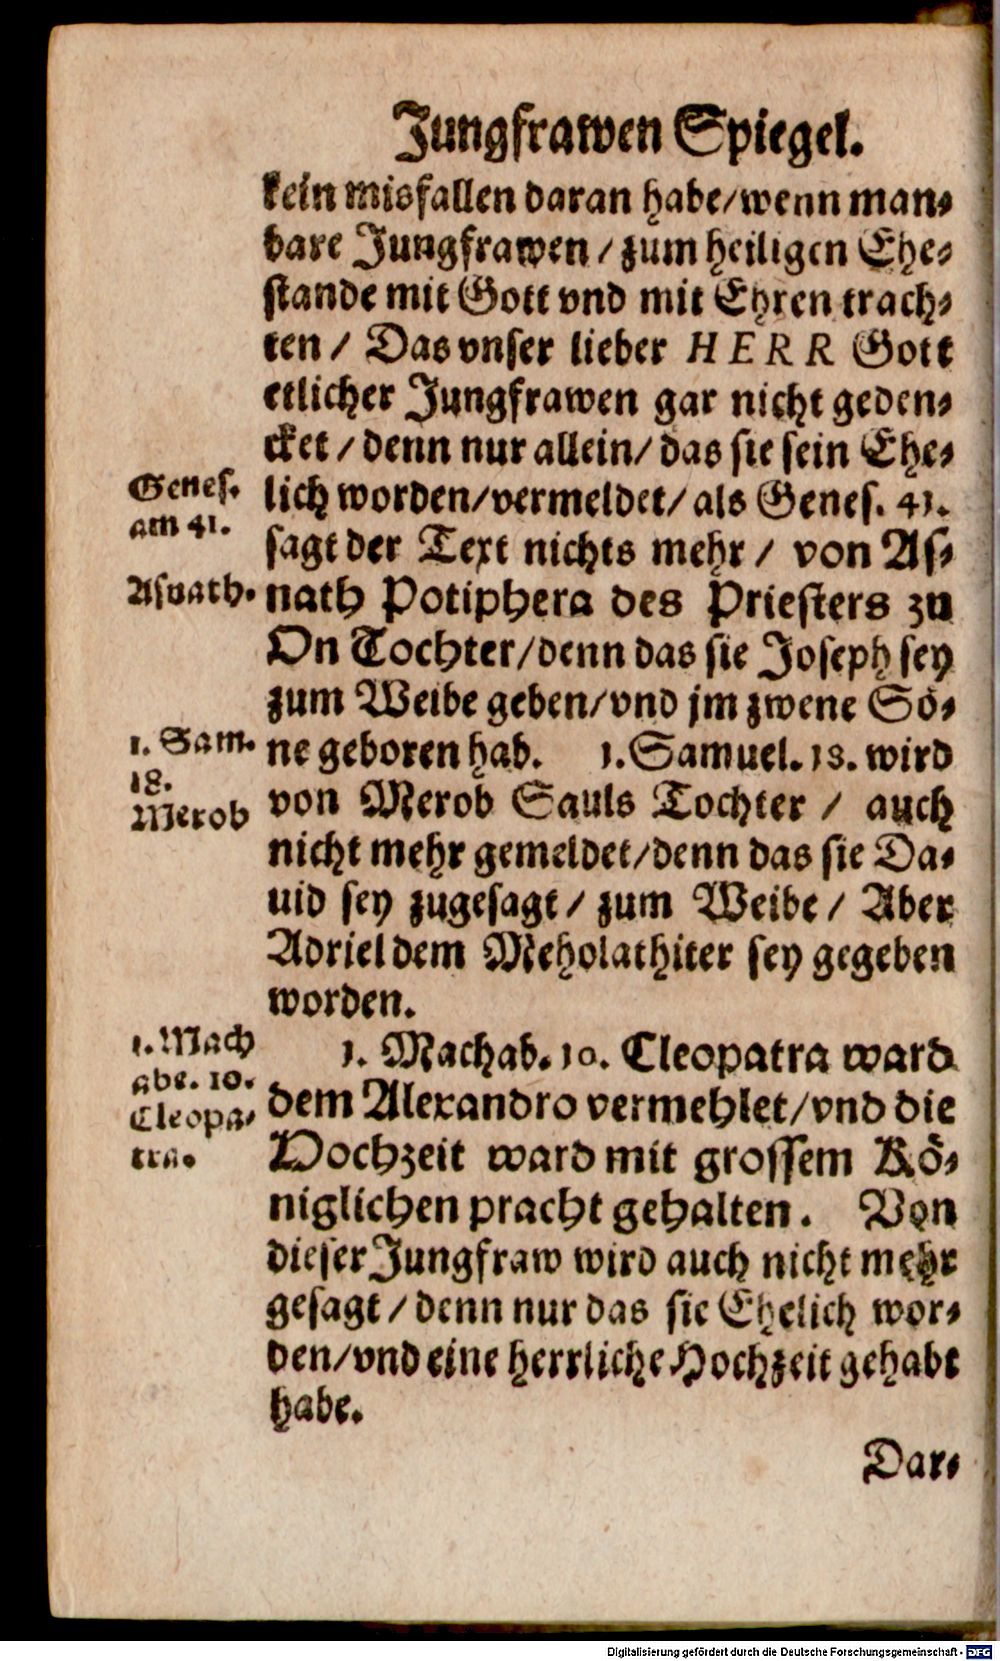 Jungfrawen Spiegel.
kein misfallen daran habe/wenn man⸗
bare Jungfrawen / zum heiligen Ehe⸗
stande mit Gott vnd mit Ehren trach⸗
ten / Das vnser lieber HERR Gott
etlicher Jungfrawen gar nicht geden⸗
cket / denn nur allein/ das sie sein Ehe⸗
Genes.
am 41.
lich worden/vermeldet/ als Genes. 41.
sagt der Text nichts mehr / von As⸗
Asnath.
nath Potiphera des Priesters zu
On Tochter/denn das sie Joseph sey
zum Weibe geben/vnd jm zwene Sö⸗
1. Sam.
18.
Merob
ne geboren hab. 1. Samuel. 18. wird
von Merob Sauls Tochter / auch
nicht mehr gemeldet/denn das sie Da⸗
uid sey zugesagt / zum Weibe / Aber
Adriel dem Meholathiter sey gegeben
worden.
1. Mach
abe. 10.
Cleopa⸗
tra.
1. Machab. 10. Cleopatra ward
dem Alexandro vermehlet/vnd die
Hochzeit ward mit grossem Kö⸗
niglichen pracht gehalten. Von
dieser Jungfraw wird auch nicht mehr
gesagt / denn nur das sie Ehelich wor⸗
den/vnd eine herrliche Hochzeit gehabt
habe.
Dar⸗
Digitalisierung gefördert durch die Deutsche Forschungsgemeinschaft - DFG